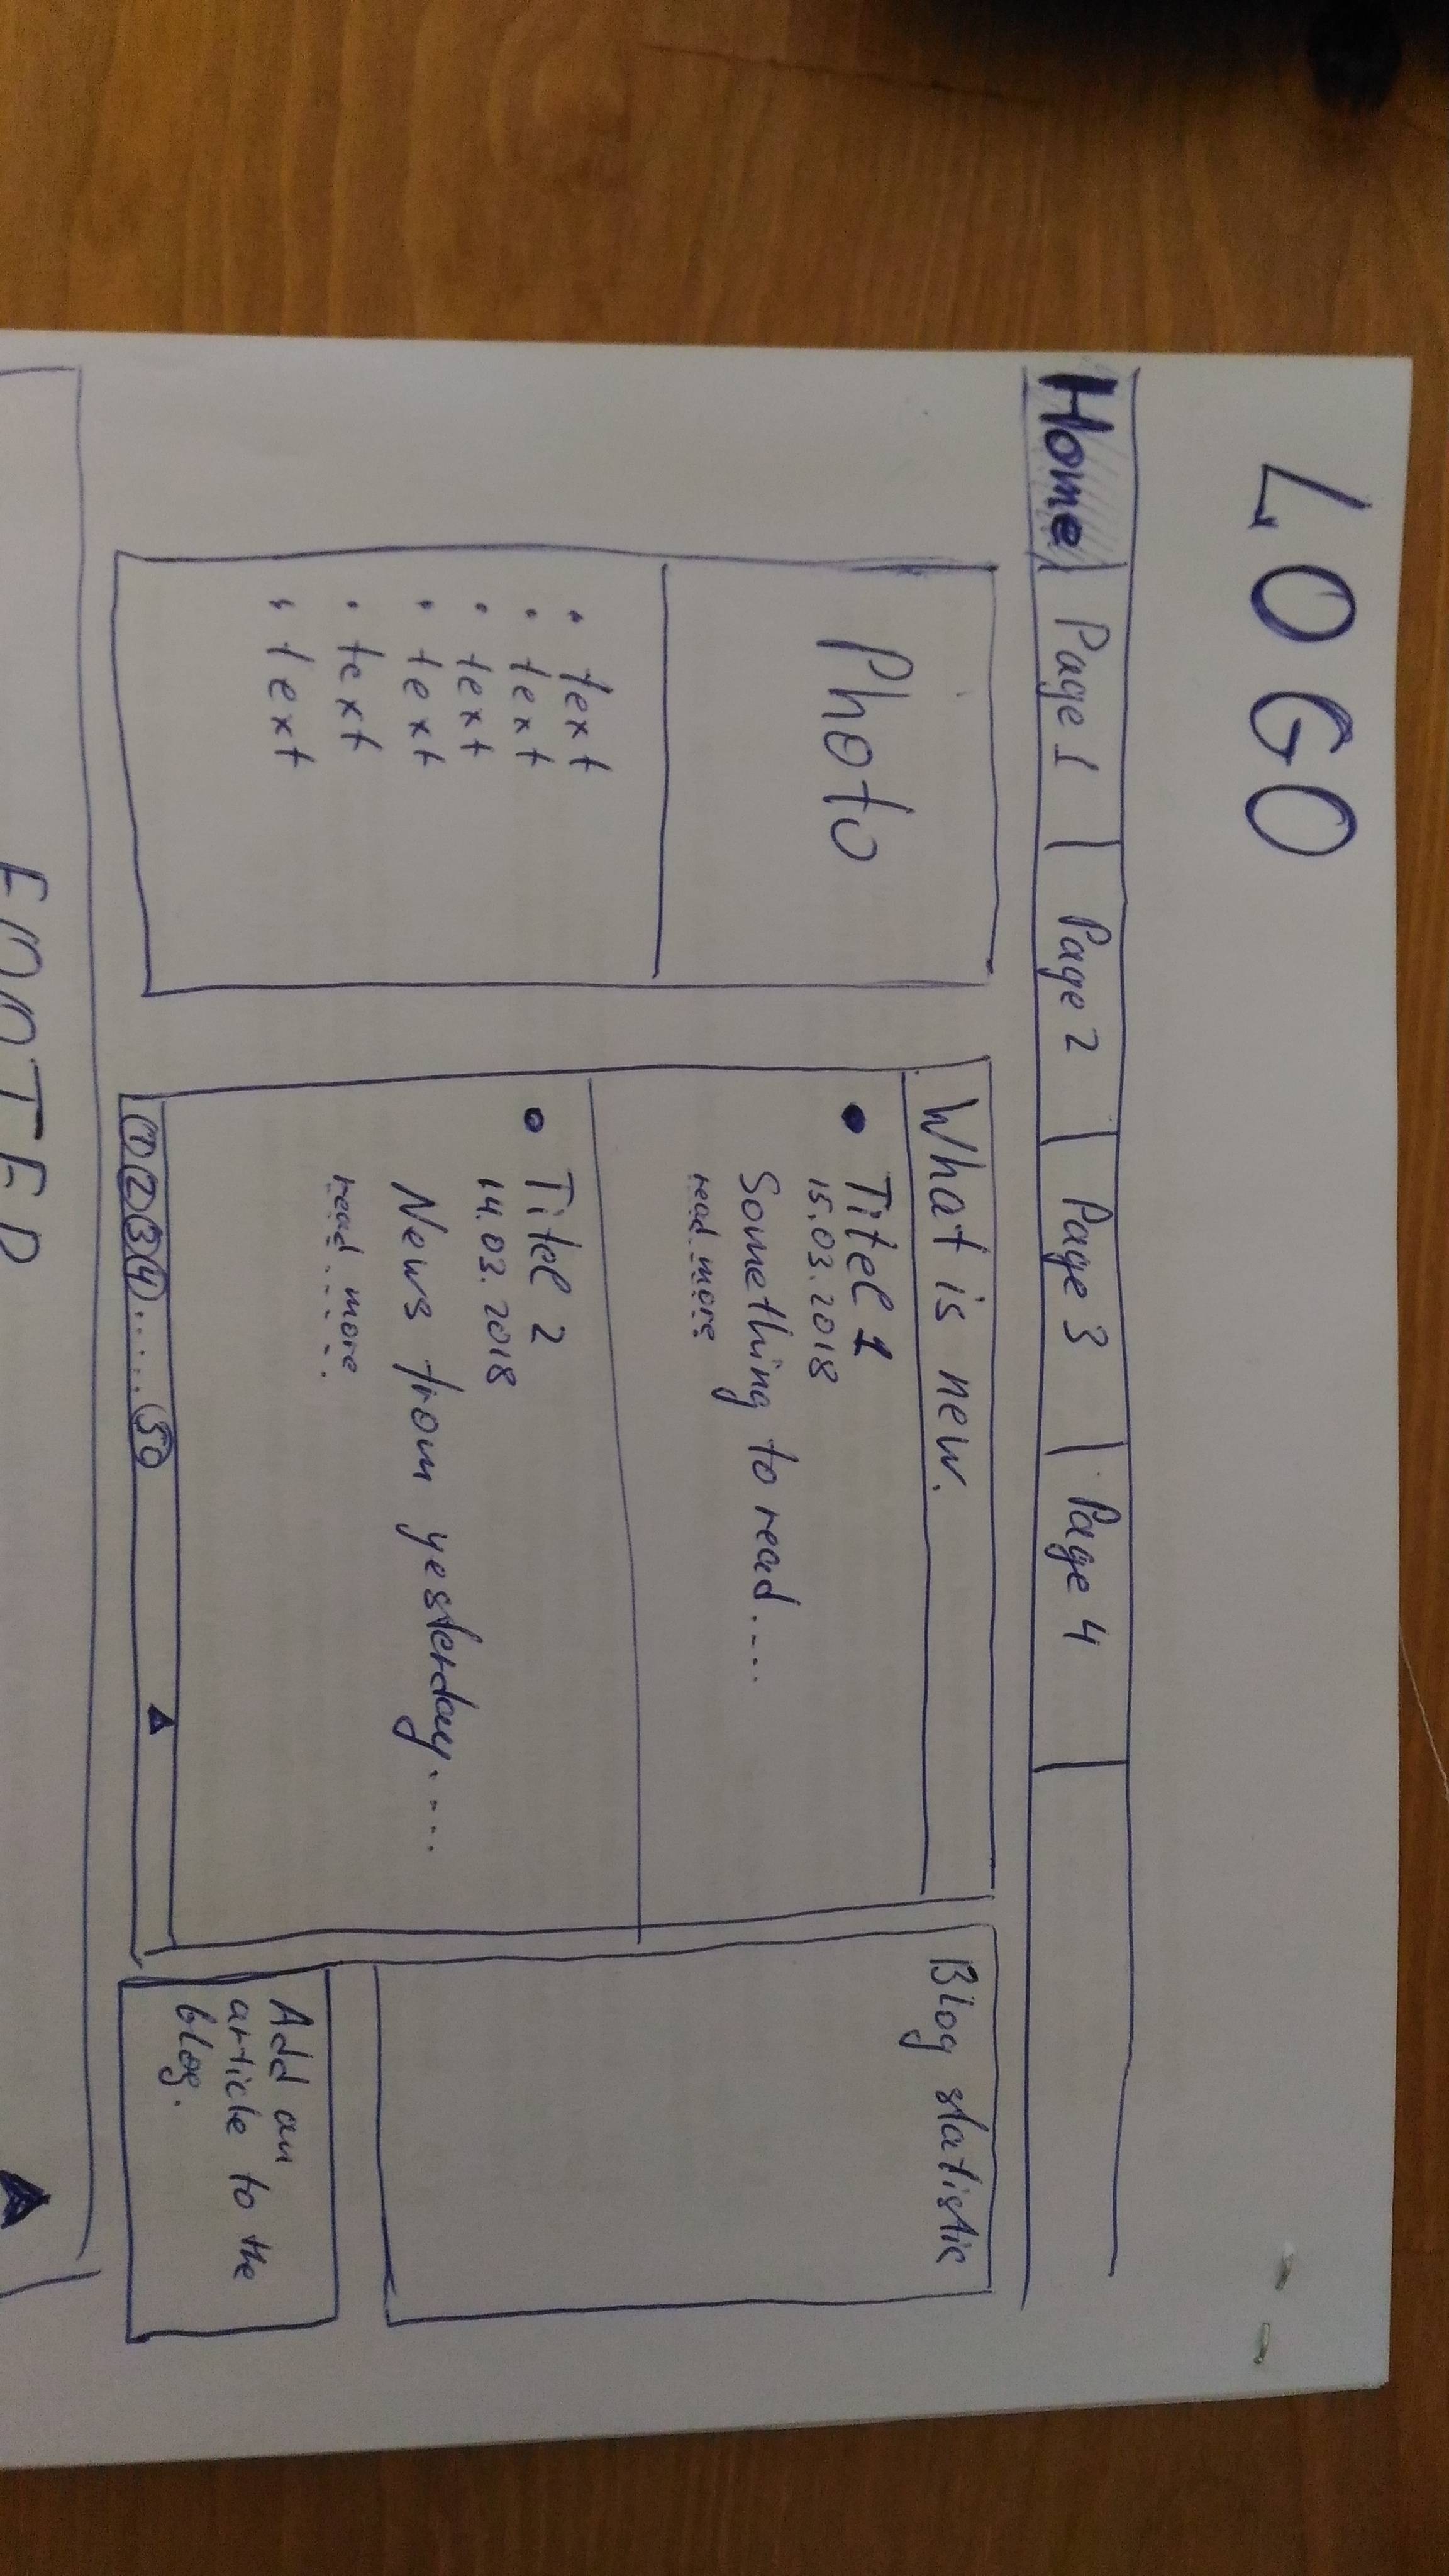 LOGO
Home Page 1 Page 2 Page 3 Page 4
Photo
• text
• text
• text
• text
• text
• text
What is new.
• Titel 1
15.03.2018
Something to read....
read more
• Titel 2
14.03.2018
News from yesterday....
read more
1 2 3 4 ..... 50
Blog statistic
Add an
article to the
blog.
FOOTER